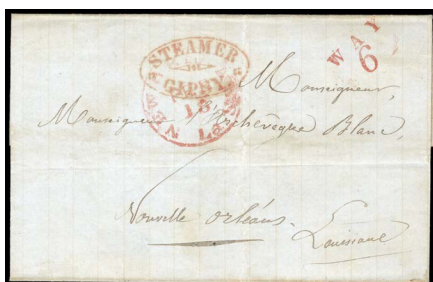 STEAMER
GIPSY
WAY
6
Monseigneur,
Monseigneur l'Archevêque Blanc,
Nouvelle Orléans.
Louisiane